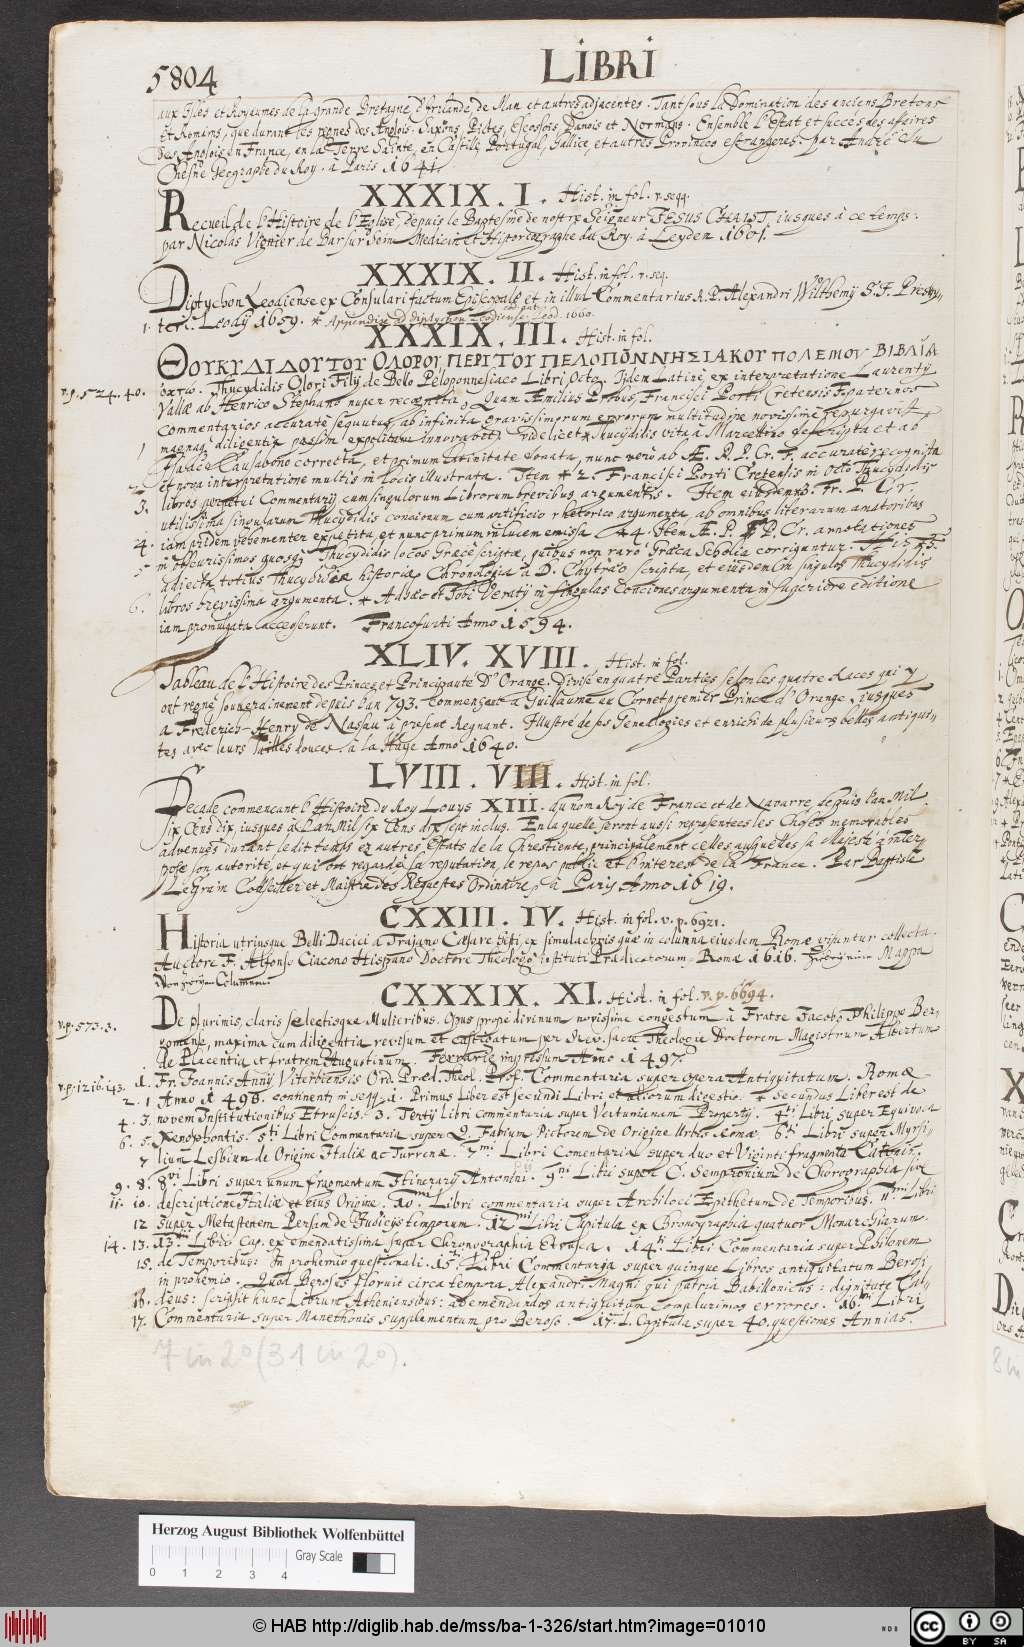 5804
LIBRI
aux Isles et Royaumes de la grande Bretagne, d'Irlande, de Man et autres adjacentes. Tant sous la Domination des anciens Bretons
et Romains, que durant les regnes des Anglois-Saxons, Pictes, Escossois, Danois et Normans. Ensemble l'Estat et succes des affaires
des Anglois en France, en la Terre Sainte, en Castille, Portugal, Gallice, et autres Provinces estrangeres. par André du
Chesne Geographe du Roy. a Paris 1641.
XXXIX. I. Hist. in fol. v. seqq.
Recueil de l'Histoire de l'Eglise, depuis le Baptesme de nostre Seigneur JESUS CHRIST, iusques à ce temps.
par Nicolas Vignier de Bar sur Seine Medicin et Historiographe du Roy. à Leyden 1601.
XXXIX. II. Hist. in fol. v. seq.
Diptychon Leodiense ex Consulari factum Episcopale et in illud Commentarius R. P. Alexandri Wilthemij S. J. Presby-
1. teri. Leodij 1659. * Appendix ad diptychon Leodiense. Leod. 1660.
XXXIX. III. Hist. in fol.
ΘΟΥΚΥΔΙΔΟΥ ΤΟΥ ΟΛΟΡΟΥ ΠΕΡΙ ΤΟΥ ΠΕΛΟΠΟΝΝΗΣΙΑΚΟΥ ΠΟΛΕΜΟΥ ΒΙΒΛΙΑ
v.p. 524. 40. ὀκτώ. Thucydidis Olori Filij de Bello Peloponnesiaco Libri Octo. Ijdem Latine ex interpretatione Laurentij
Vallae ab Henrico Stephano nuper recognita, Quam Æmilius Portus, Francisci Porti Cretensis F. paternos
commentarios accurate sequutus, ab infinita gravissimorum errorum multitudine novissime repurgavit
1 magnaq; diligentia passim expolitam innovavit, videlicet * Thucydidis vita à Marcellino descripta et ab
Isaaco Causabono correcta, et primum latinitate donata, nunc vero ab Æ. P. P. Cr. F. accurate recognita
2. et nova interpretatione multis in locis illustrata. Item * 2. Francisci Porti Cretensis in octo Thucydidis
3. libros perpetui Commentarij cum singulorum Librorum brevibus argumentis. Item eiusdem 3. Fr. P. Cr.
utilissima singularum Thucydidis concionum cum artificio rhetorico argumenta, ab omnibus literarum amatoribus
4. iam pridem vehementer expetita, et nunc primum in lucem emissa * 4. Item Æ. P. F. P. Cr. annotationes
5 in obscurissimos quosq; Thucydidis locos Græce scriptæ, quibus non raro Græca Scholia corriguntur.
adiecta totius Thucydideæ historiæ Chronologia à D. Chytræo scripta, et eiusdem in singulos Thucydidis
6. libros brevissima argumenta. * Adhæc et Tobi Veratij in singulas Conciones argumenta in superiore editione
iam promulgata accesserunt. Francofurti Anno 1594.
XLIV. XVIII. Hist. in fol.
Tableau de l'Histoire des Princes et Principauté D'Orange. Divisé en quatre Parties selon les quatre Races qui y
ont regné souverainement depuis l'an 793. Commençant à Guillaume au Cornet premier Prince d'Orange, jusques
a Frederich-Henry de Nassau à present Regnant. Illustré de ses Genealogies et enrichi de plusieurs belles antiqui-
tes avec leurs Tailles douces à la Haye Anno 1640.
LVIII. VIII. Hist. in fol.
Decade commencant l'Histoire du Roy Louys XIII. du nom Roy de France et de Navarre, depuis l'an Mil
six Cens dix, iusques à l'an Mil six Cens dix sept inclus. En laquelle seront aussi representees les Choses memorables
advenues durant ledit temps ez autres Estats de la Chrestienté, principalement celles auquelles sa Majesté a inter-
posé son autorité, et qui ont regardé sa reputation, le repos public et l'interest de la France. Par Baptiste
Le Grain Conseiller et Maistre des Requestes Ordinaire, à Paris Anno 1619.
CXXIII. IV. Hist. in fol. v. p. 6921.
Historia utriusque Belli Dacici a Trajano Cæsare gesti, ex simulacris quæ in columna eiusdem Romæ visuntur collecta.
Auctore F. Alfonso Ciacono Hispano Doctore Theologo instituti Prædicatorum. Romæ 1616. Mappa
Columnæ.
CXXXIX. XI. Hist. in fol. v. p. 6694.
v.p. 573. 3. De plurimis, claris selectisque Mulieribus. Opus prope divinum novissime congestum à Fratre Jacobo Philippo Ber-
gomense, maxima cum diligentia revisum et castigatum per Rev. sacræ Theologiæ Doctorem Magistrum Albertum
de Placentia et fratrem Augustinum. Ferrariæ impressum Anno 1497.
v.p. 1216. 143. 1. Fr. Joannis Annij Viterbiensis Ord. Præd. Theol. Prof. Commentaria super opera Antiquitatum. Romæ
2. 1 Anno 1498. continent in seqq. 1. Primus Liber est secundi Libri et aliorum digestio. * Secundus Liber est de
4. 3. novem Institutionibus Etruscis. 3. Tertij libri commentaria super Vertunianam Propertij. 4ti Libri super Equivoca
6. 5. Xenophontis. 5ti Libri Commentaria super Q. Fabium Pictorem de Origine Urbis Romæ. 6ti Libri super Myrsi-
7 lium Lesbium de Origine Italiæ ac Turrenæ. 7mi Libri Comentaria super duo et Viginti fragmenta Catonis.
9. 8. 8vi Libri super unum fragmentum Itinerarij Antonini. 9ni Libri super C. Sempronium de Chorographia sive
11. 10. descriptione Italiæ et eius Origine. 10mi Libri commentaria super Archiloci Epithetum de Temporibus. 11mi Libri
12 super Metasthenem Persen de Judicijs temporum. 12mi Libri Capitula ex Chronographia quatuor Monarchiarum.
14. 13. 13tij Libri Cap. ex emendatissima super Chronographia Etrusca. 14ti Libri Commentaria super Philonem
15. de Temporibus: In prohemio quæstionali. 15ti Libri Commentaria super quinque Libros antiquitatum Berosi
in prohemio. Quod Beroses floruit circa tempora Alexandri Magni qui patria Babillonicus: dignitate Cal-
16. deus: scripsit hunc Librum Atheniensibus: ad emendandos antiquitatum complurimos errores. 16ti Libri
17. Commentaria super Manethonis supplementum pro Beroso. 17. L. Capitula super 40. quæstiones Annias.
7 in 2° (31 in 2°).
Herzog August Bibliothek Wolfenbüttel
Gray Scale
0 1 2 3 4
© HAB http://diglib.hab.de/mss/ba-1-326/start.htm?image=01010
cc BY SA